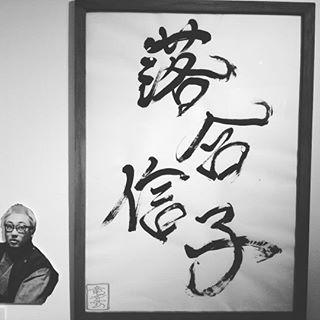 落合
信子